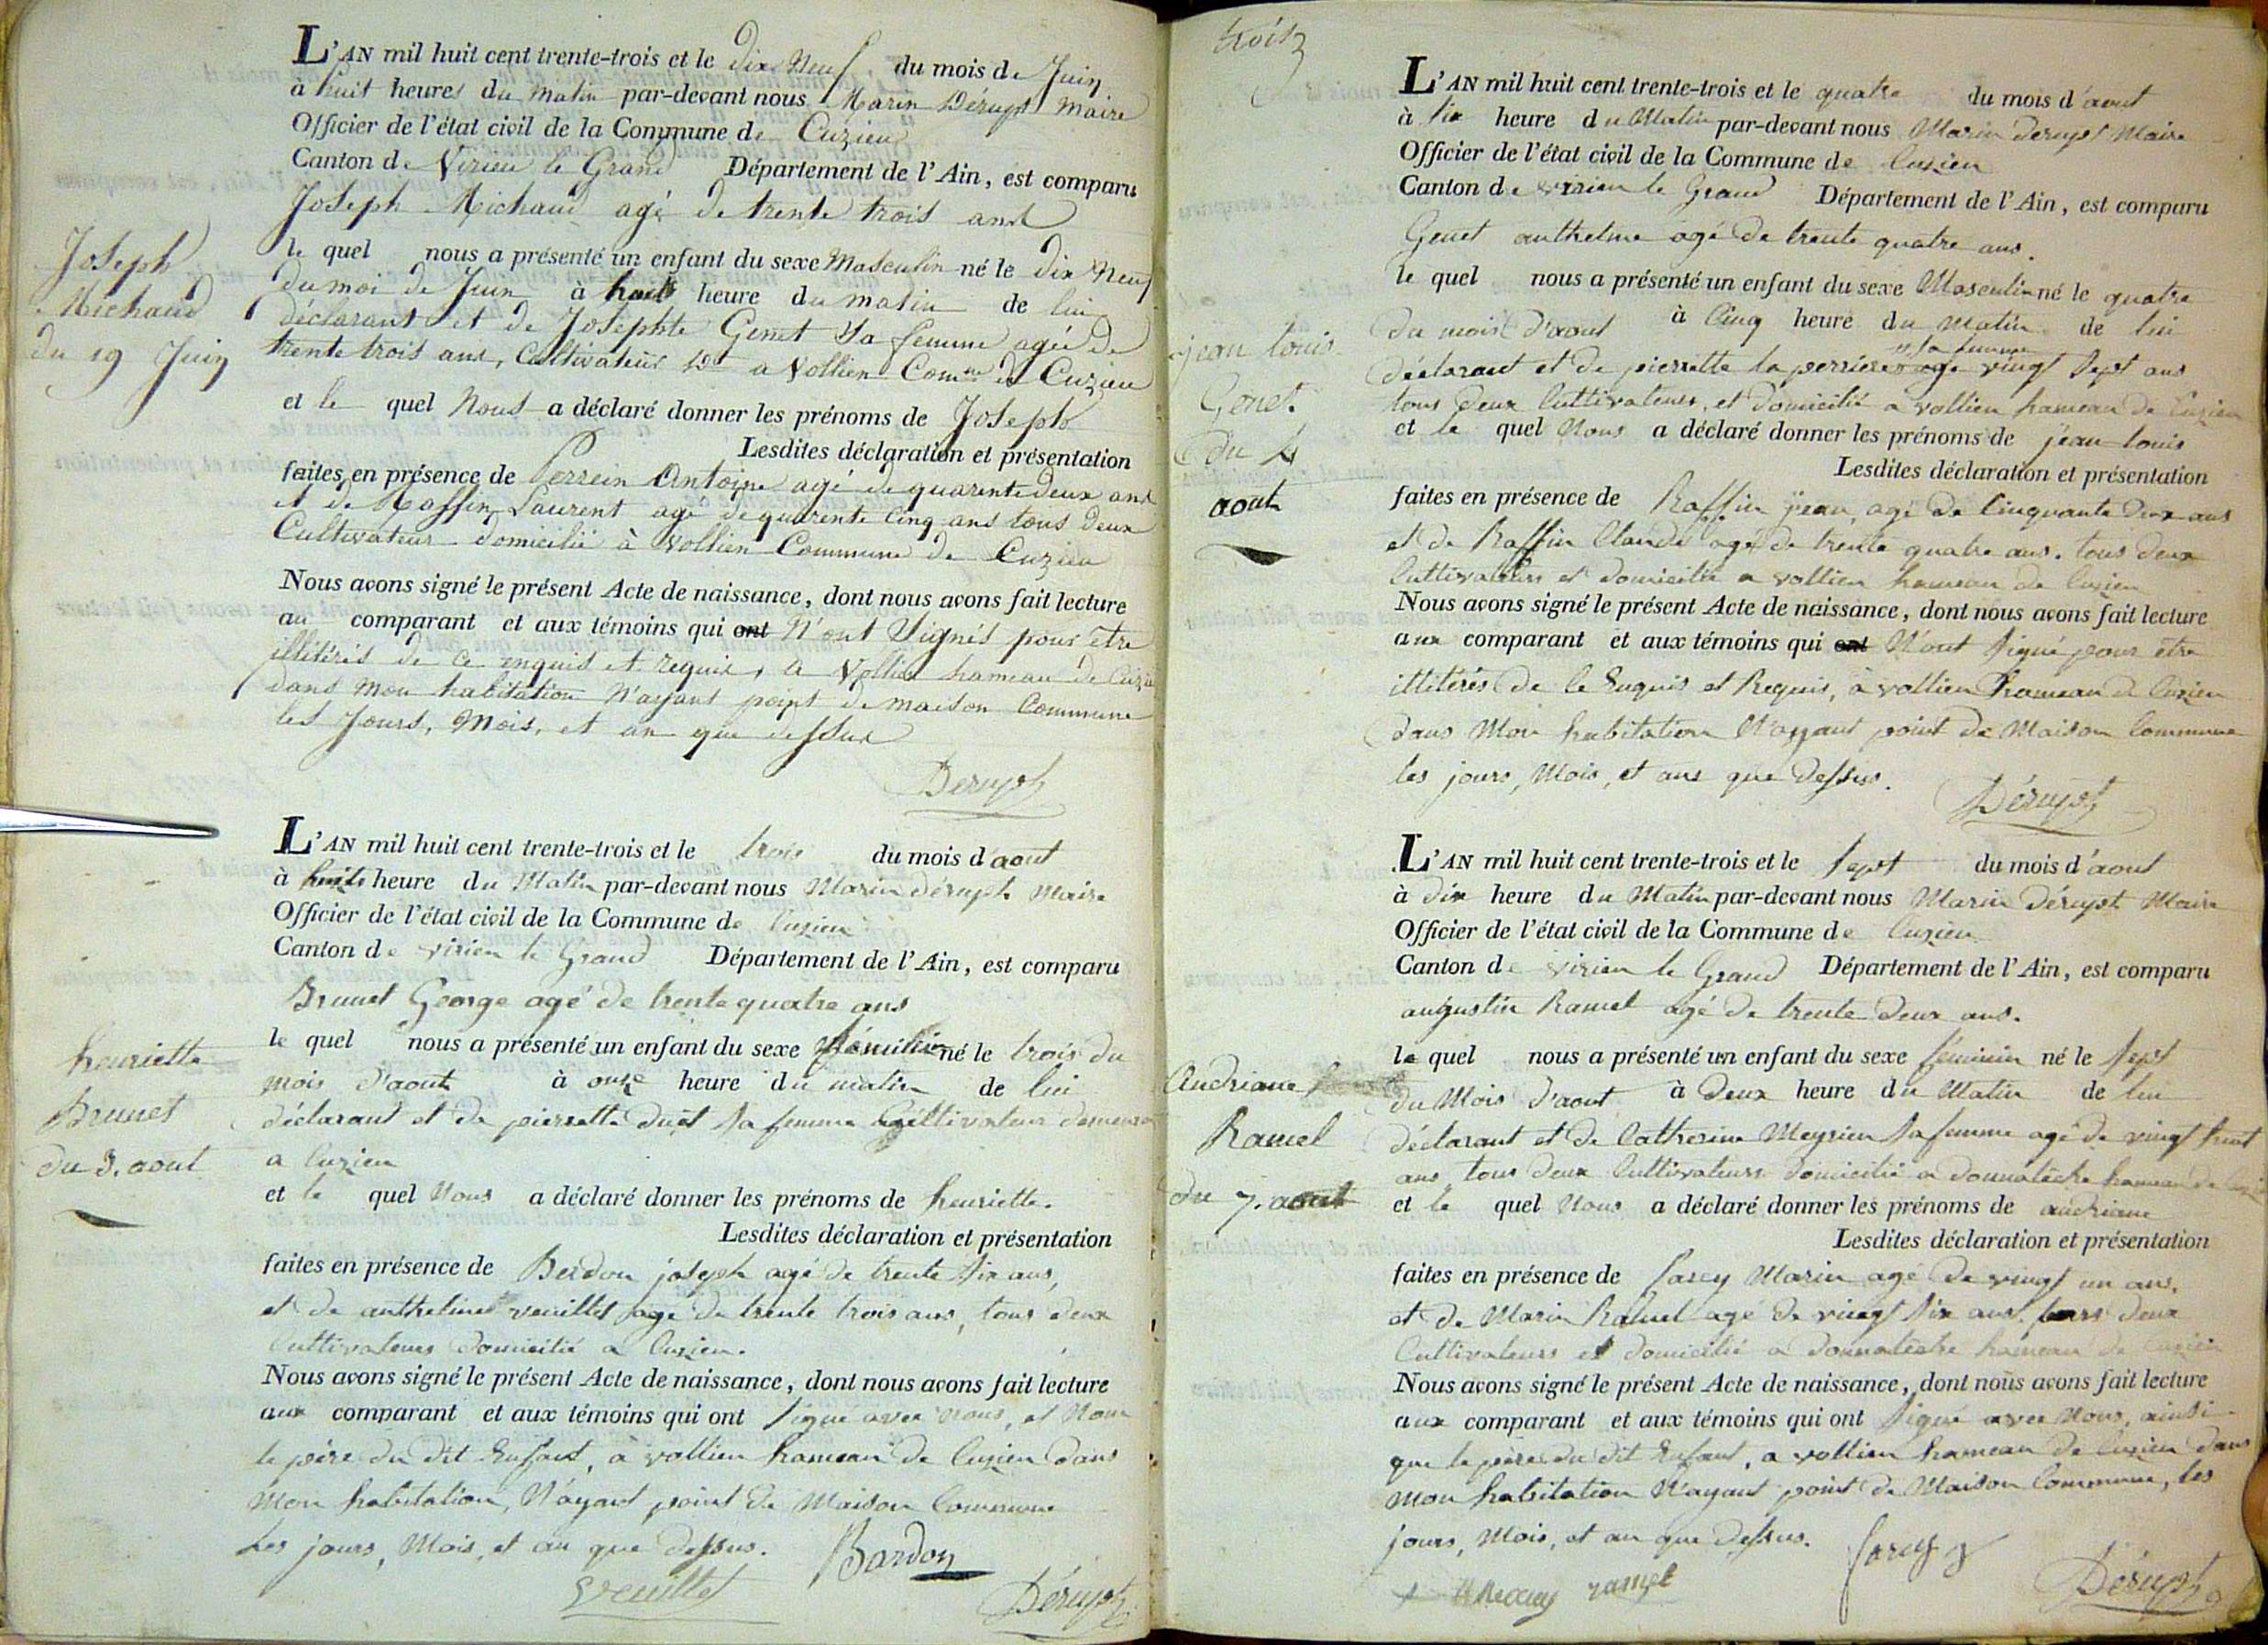 L'AN mil huit cent trente-trois et le dix Neuf du mois de Juin
a huit heures du Matin par-devant nous Marin Déruyst maire
Officier de l'état civil de la Commune de Cuzieu
Canton de Virieu le Grand Département de l'Ain, est comparu
Joseph Michaud agé de trente trois ans
le quel nous a présenté un enfant du sexe Masculin né le dix Neuf
du moi de Juin à huit heure du matin de lui
déclarant et de Josephte Genet Sa femme agée de
trente trois ans, Cultivateur a Vollien Comne de Cuzieu
et le quel Nous a déclaré donner les prénoms de Joseph
Lesdites déclaration et présentation
faites en présence de Perrein Antoine agé de quarente deux ans
et de Laurent agé de quarente Cinq ans tous deux
Cultivateur domicilié à Vollien Commune de Cuzieu
Nous avons signé le présent Acte de naissance, dont nous avons fait lecture
au comparant et aux témoins qui ont N'ont Signés pour être
illitérés de ce enquis et requis, a Vollien hameau de
dans mon habitation N'ayant point de maison Commune
les Jours, Mois, et an que dessus
Déruyst
Joseph
Michaud
du 19 Juin
L'AN mil huit cent trente-trois et le trois du mois d'aout
à heure du Matin par-devant nous Marin déruyst Maire
Officier de l'état civil de la Commune de Cuzieu
Canton de virieu le Grand Département de l'Ain, est comparu
Brunet George agé de trente quatre ans
le quel nous a présenté un enfant du sexe féminin né le trois du
mois d'aout à onze heure du matin de lui
déclarant et de pierrette sa femme
a Cuzieu
et le quel Nous a déclaré donner les prénoms de henriette.
Lesdites déclaration et présentation
faites en présence de Berdon joseph agé de trente six ans,
et de veuillet agé de trente trois ans, tous deux
Cultivateurs Domicilié a Cuzieu.
Nous avons signé le présent Acte de naissance, dont nous avons fait lecture
aux comparant et aux témoins qui ont signé avec nous, et Non
le père du dit Enfant, à vollien hameau de Cuzieu dans
Mon habitation, N'ayant point de Maison Commune
Les jours, Mois, et an que dessus.
Bardon
veuillet
Déruyst
henriette
Brunet
du 3. aout
trois
L'AN mil huit cent trente-trois et le quatre du mois d'aout
à six heure du Matin par-devant nous Marin deruyst Maire
Officier de l'état civil de la Commune de Cuzieu
Canton de virieu le Grand Département de l'Ain, est comparu
Genet anthelme agé de trente quatre ans.
le quel nous a présenté un enfant du sexe Masculin né le quatre
du mois d'aout à Cinq heure du Matin de lui
sa femme
déclarant et de pierrette la perriere agé vingt sept ans
tous deux Cultivateurs, et domicilié a vollien hameau de Cuzieu
et le quel Nous a déclaré donner les prénoms de jean louis
Lesdites déclaration et présentation
faites en présence de Raffin jean, agé de Cinquante deux ans
et de Raffin Claude agé de trente quatre ans. tous deux
Cultivateurs et domicilié a vollien hameau de Cuzieu
Nous avons signé le présent Acte de naissance, dont nous avons fait lecture
aux comparant et aux témoins qui ont N'ont signé pour être
illitérés de Ce Enquis et Requis, à vollien hameau de Cuzieu
dans Mon habitation N'ayant point de Maison Commune
les jours, Mois, et ans que dessus.
Déruyst
jean louis
Genet
du 4
aout
L'AN mil huit cent trente-trois et le sept du mois d'aout
à dix heure du Matin par-devant nous Marin Déruyst Maire
Officier de l'état civil de la Commune de Cuzieu
Canton de virieu le Grand Département de l'Ain, est comparu
augustin Ramel agé de trente deux ans.
le quel nous a présenté un enfant du sexe féminin né le sept
du Mois d'aout à deux heure du Matin de lui
déclarant et de Catherine Meyrieu sa femme agé de vingt huit
ans tous deux Cultivateurs domicilié a hameau de
et le quel Nous a déclaré donner les prénoms de andriane
Lesdites déclaration et présentation
faites en présence de Marin agé de vingt un ans.
et de Marin Ramel agé de vingt six ans. tous deux
Cultivateurs et domicilié a hameau de Cuzieu
Nous avons signé le présent Acte de naissance, dont nous avons fait lecture
aux comparant et aux témoins qui ont signé avec Nous, ainsi
que le père du dit Enfant, a vollien hameau de Cuzieu dans
Mon habitation N'ayant point de Maison Commune, les
jours, Mois, et an que dessus.
Déruyst
Andriane
Ramel
du 7. aout